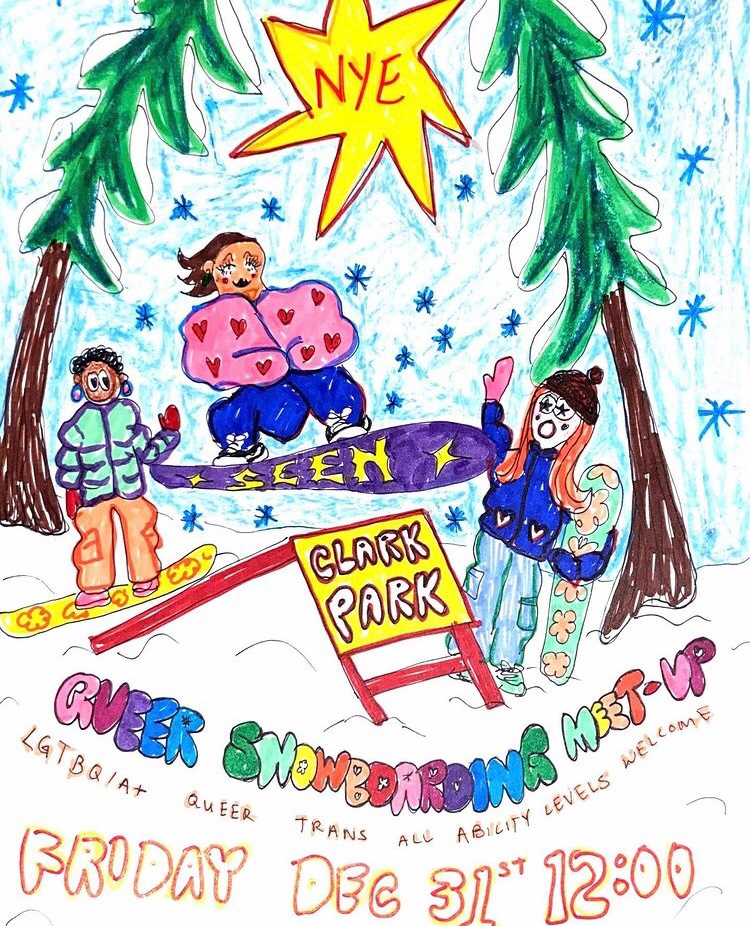 NYE
SEEN
CLARK
PARK
QUEER SNOWBOARDING MEET-UP
LGTBQIA+ QUEER TRANS ALL ABILITY LEVELS WELCOME
FRIDAY DEC 31ST 12:00